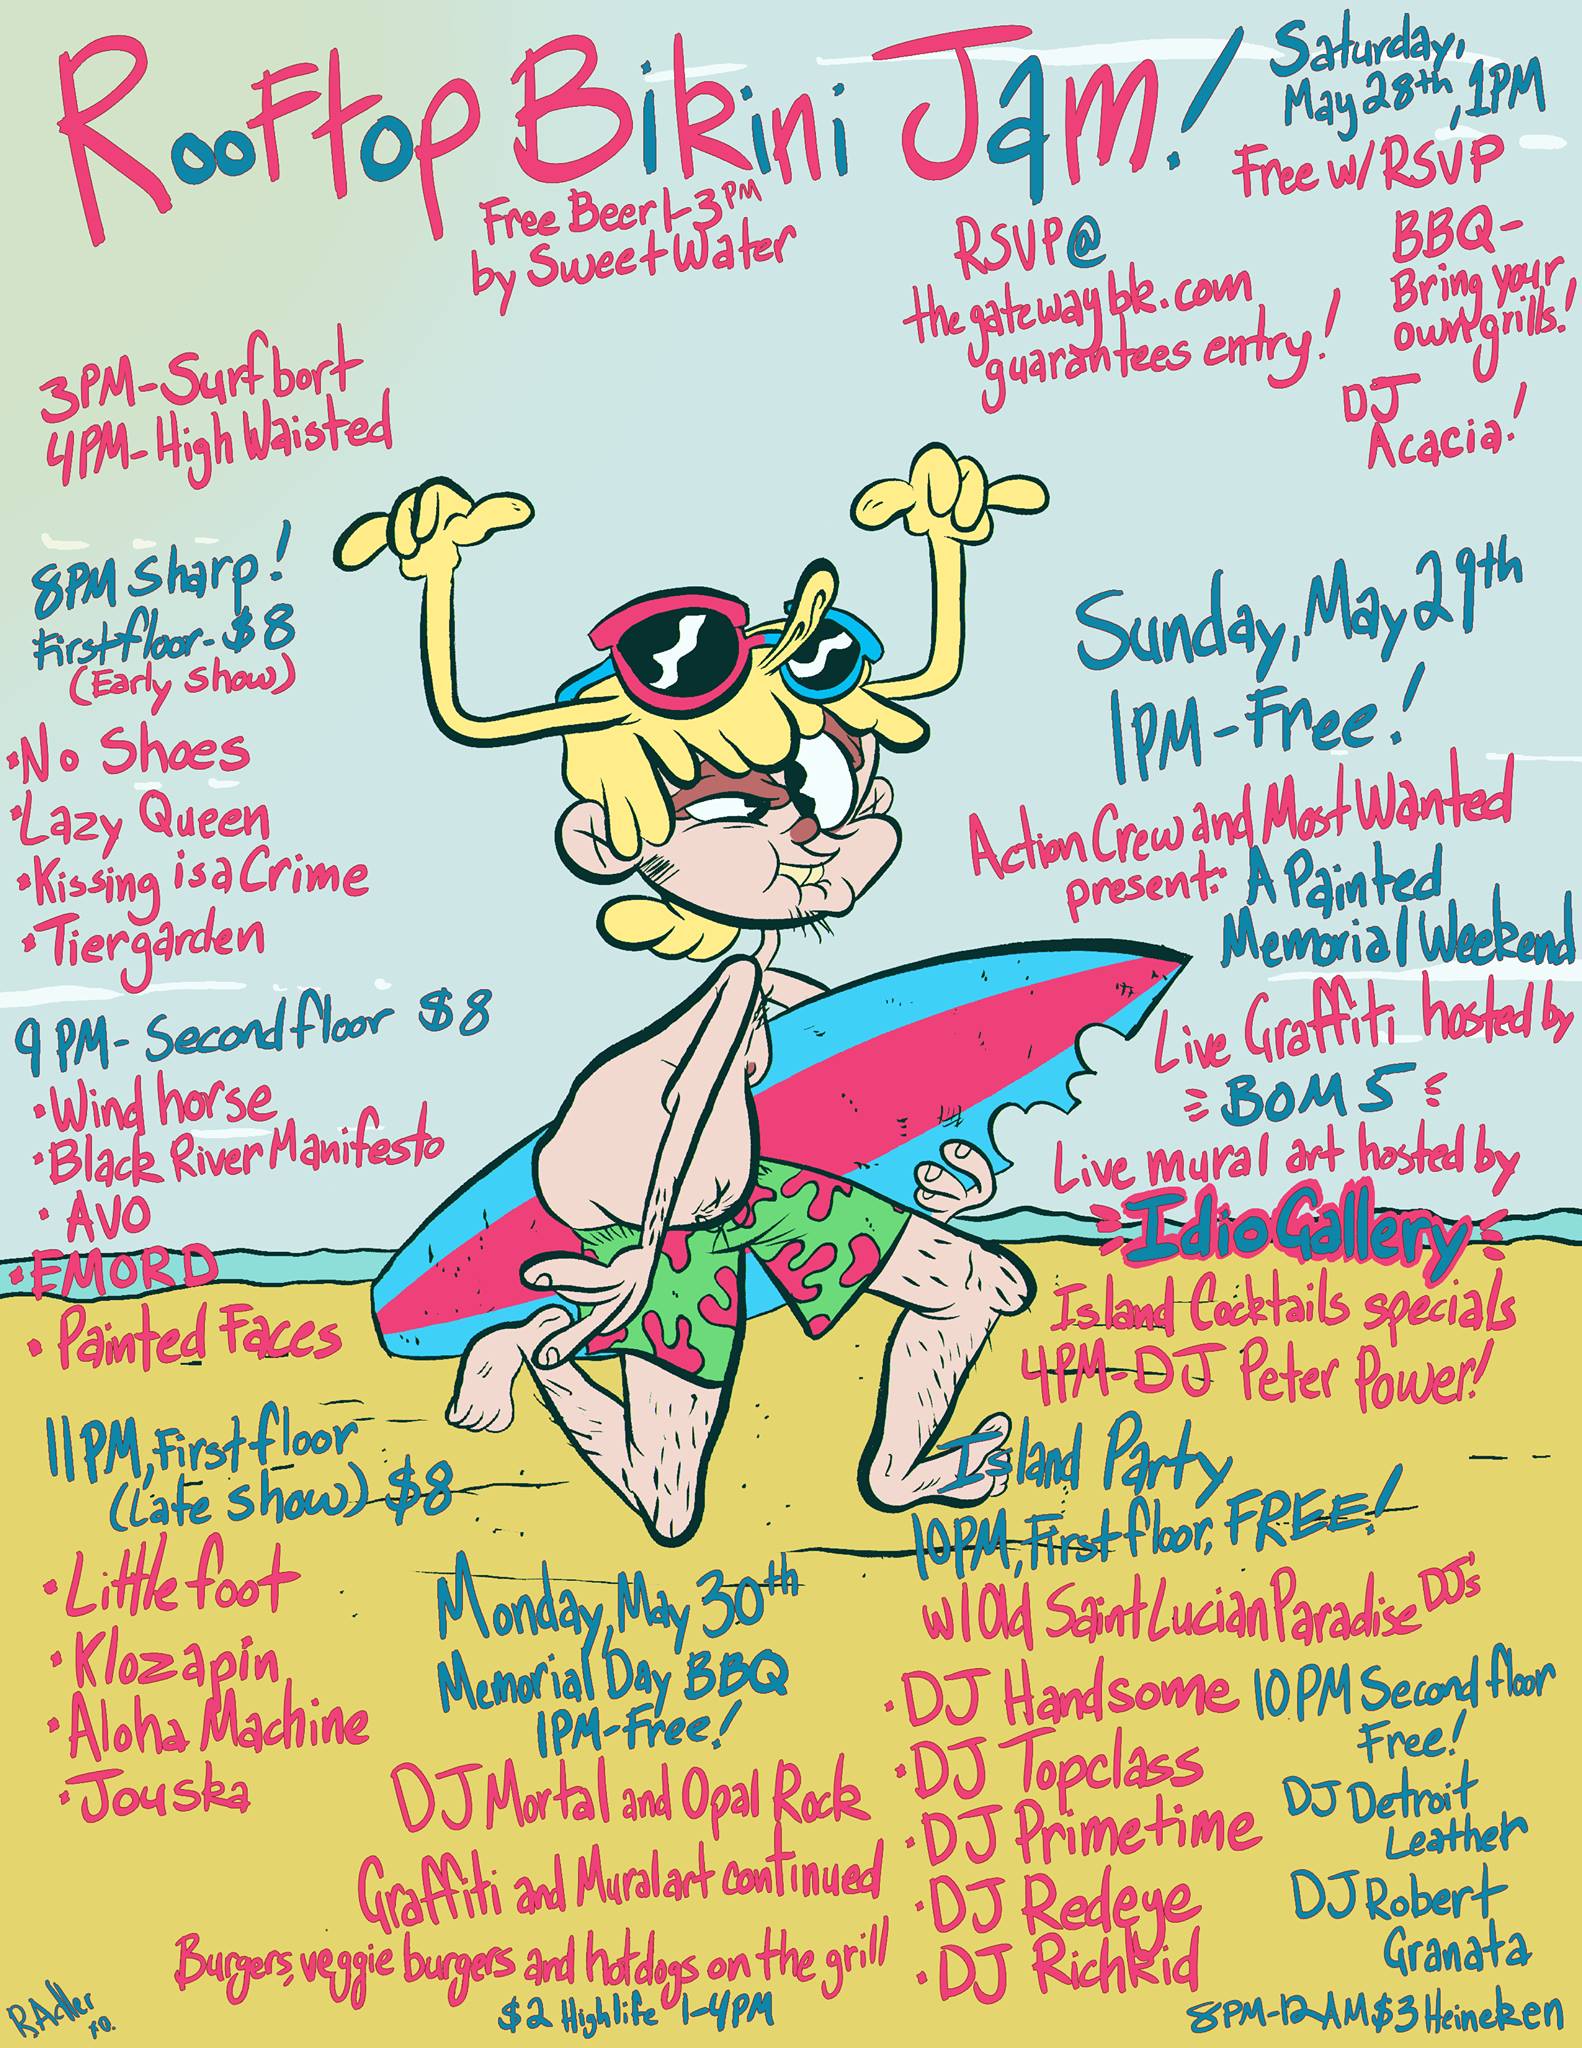 Rooftop Bikini Jam!
Saturday,
May 28th, 1PM
Free w/RSVP
Free Beer 1-3PM
by SweetWater
RSVP@
thegatewaybk.com
guarantees entry!
BBQ-
Bring your
own grills!
DJ
Acacia!
3PM-Surfbort
4PM-High Waisted
8PM Sharp!
First floor-$8
(Early Show)
•No Shoes
•Lazy Queen
•Kissing is a Crime
•Tiergarden
9PM-Second floor $8
•Wind horse
•Black River Manifesto
•AVO
•EMORD
•Painted Faces
11PM, First floor
(Late Show) $8
•Little foot
•Klozapin
•Aloha Machine
•Jouska
Sunday, May 29th
1PM-Free!
Action Crew and Most Wanted
present: A Painted
Memorial Weekend
Live Graffiti hosted by
BOM5
Live mural art hosted by
Idio Gallery
Island Cocktails specials
4PM-DJ Peter Power!
Island Party
10PM, First floor, FREE!
w/Old Saint Lucian Paradise DJs'
•DJ Handsome
•DJ Topclass
•DJ Primetime
•DJ Redeye
•DJ Richkid
10PM Second floor
Free!
DJ Detroit
Leather
DJ Robert
Granata
8PM-12AM $3 Heineken
Monday, May 30th
Memorial Day BBQ
1PM-Free!
DJ Mortal and Opal Rock
Graffiti and Mural art continued
Burgers, veggie burgers and hotdogs on the grill
$2 Highlife 1-4PM
R.Adler
xo.